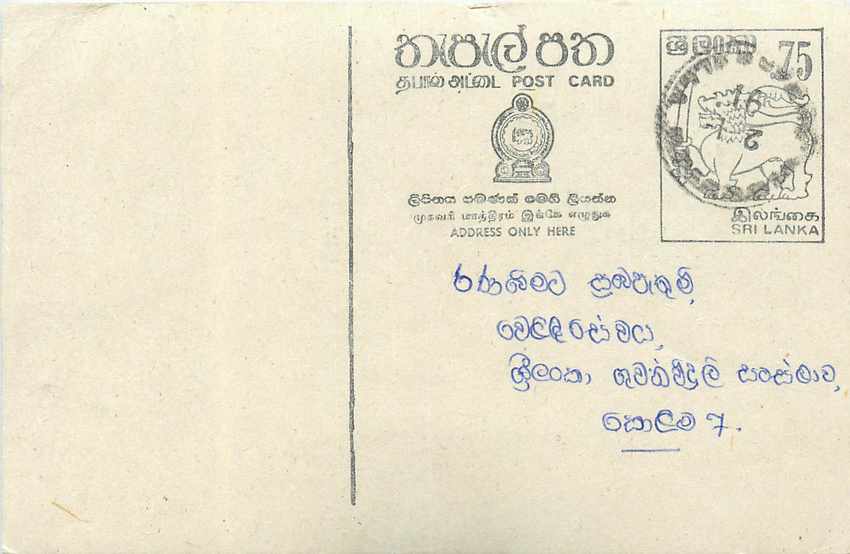 තැපැල් පත
தபால் அட்டை POST CARD
ලිපිනය පමණක් මෙහි ලියන්න
முகவரி மாத்திரம் இங்கே எழுதுக
ADDRESS ONLY HERE
ශ්‍රී ලංකා 75
இலங்கை
SRI LANKA
රණබිමට
වෙළඳ සේවය,
ශ්‍රී ලංකා ගුවන් විදුලි සංස්ථාව,
කොළඹ 7.